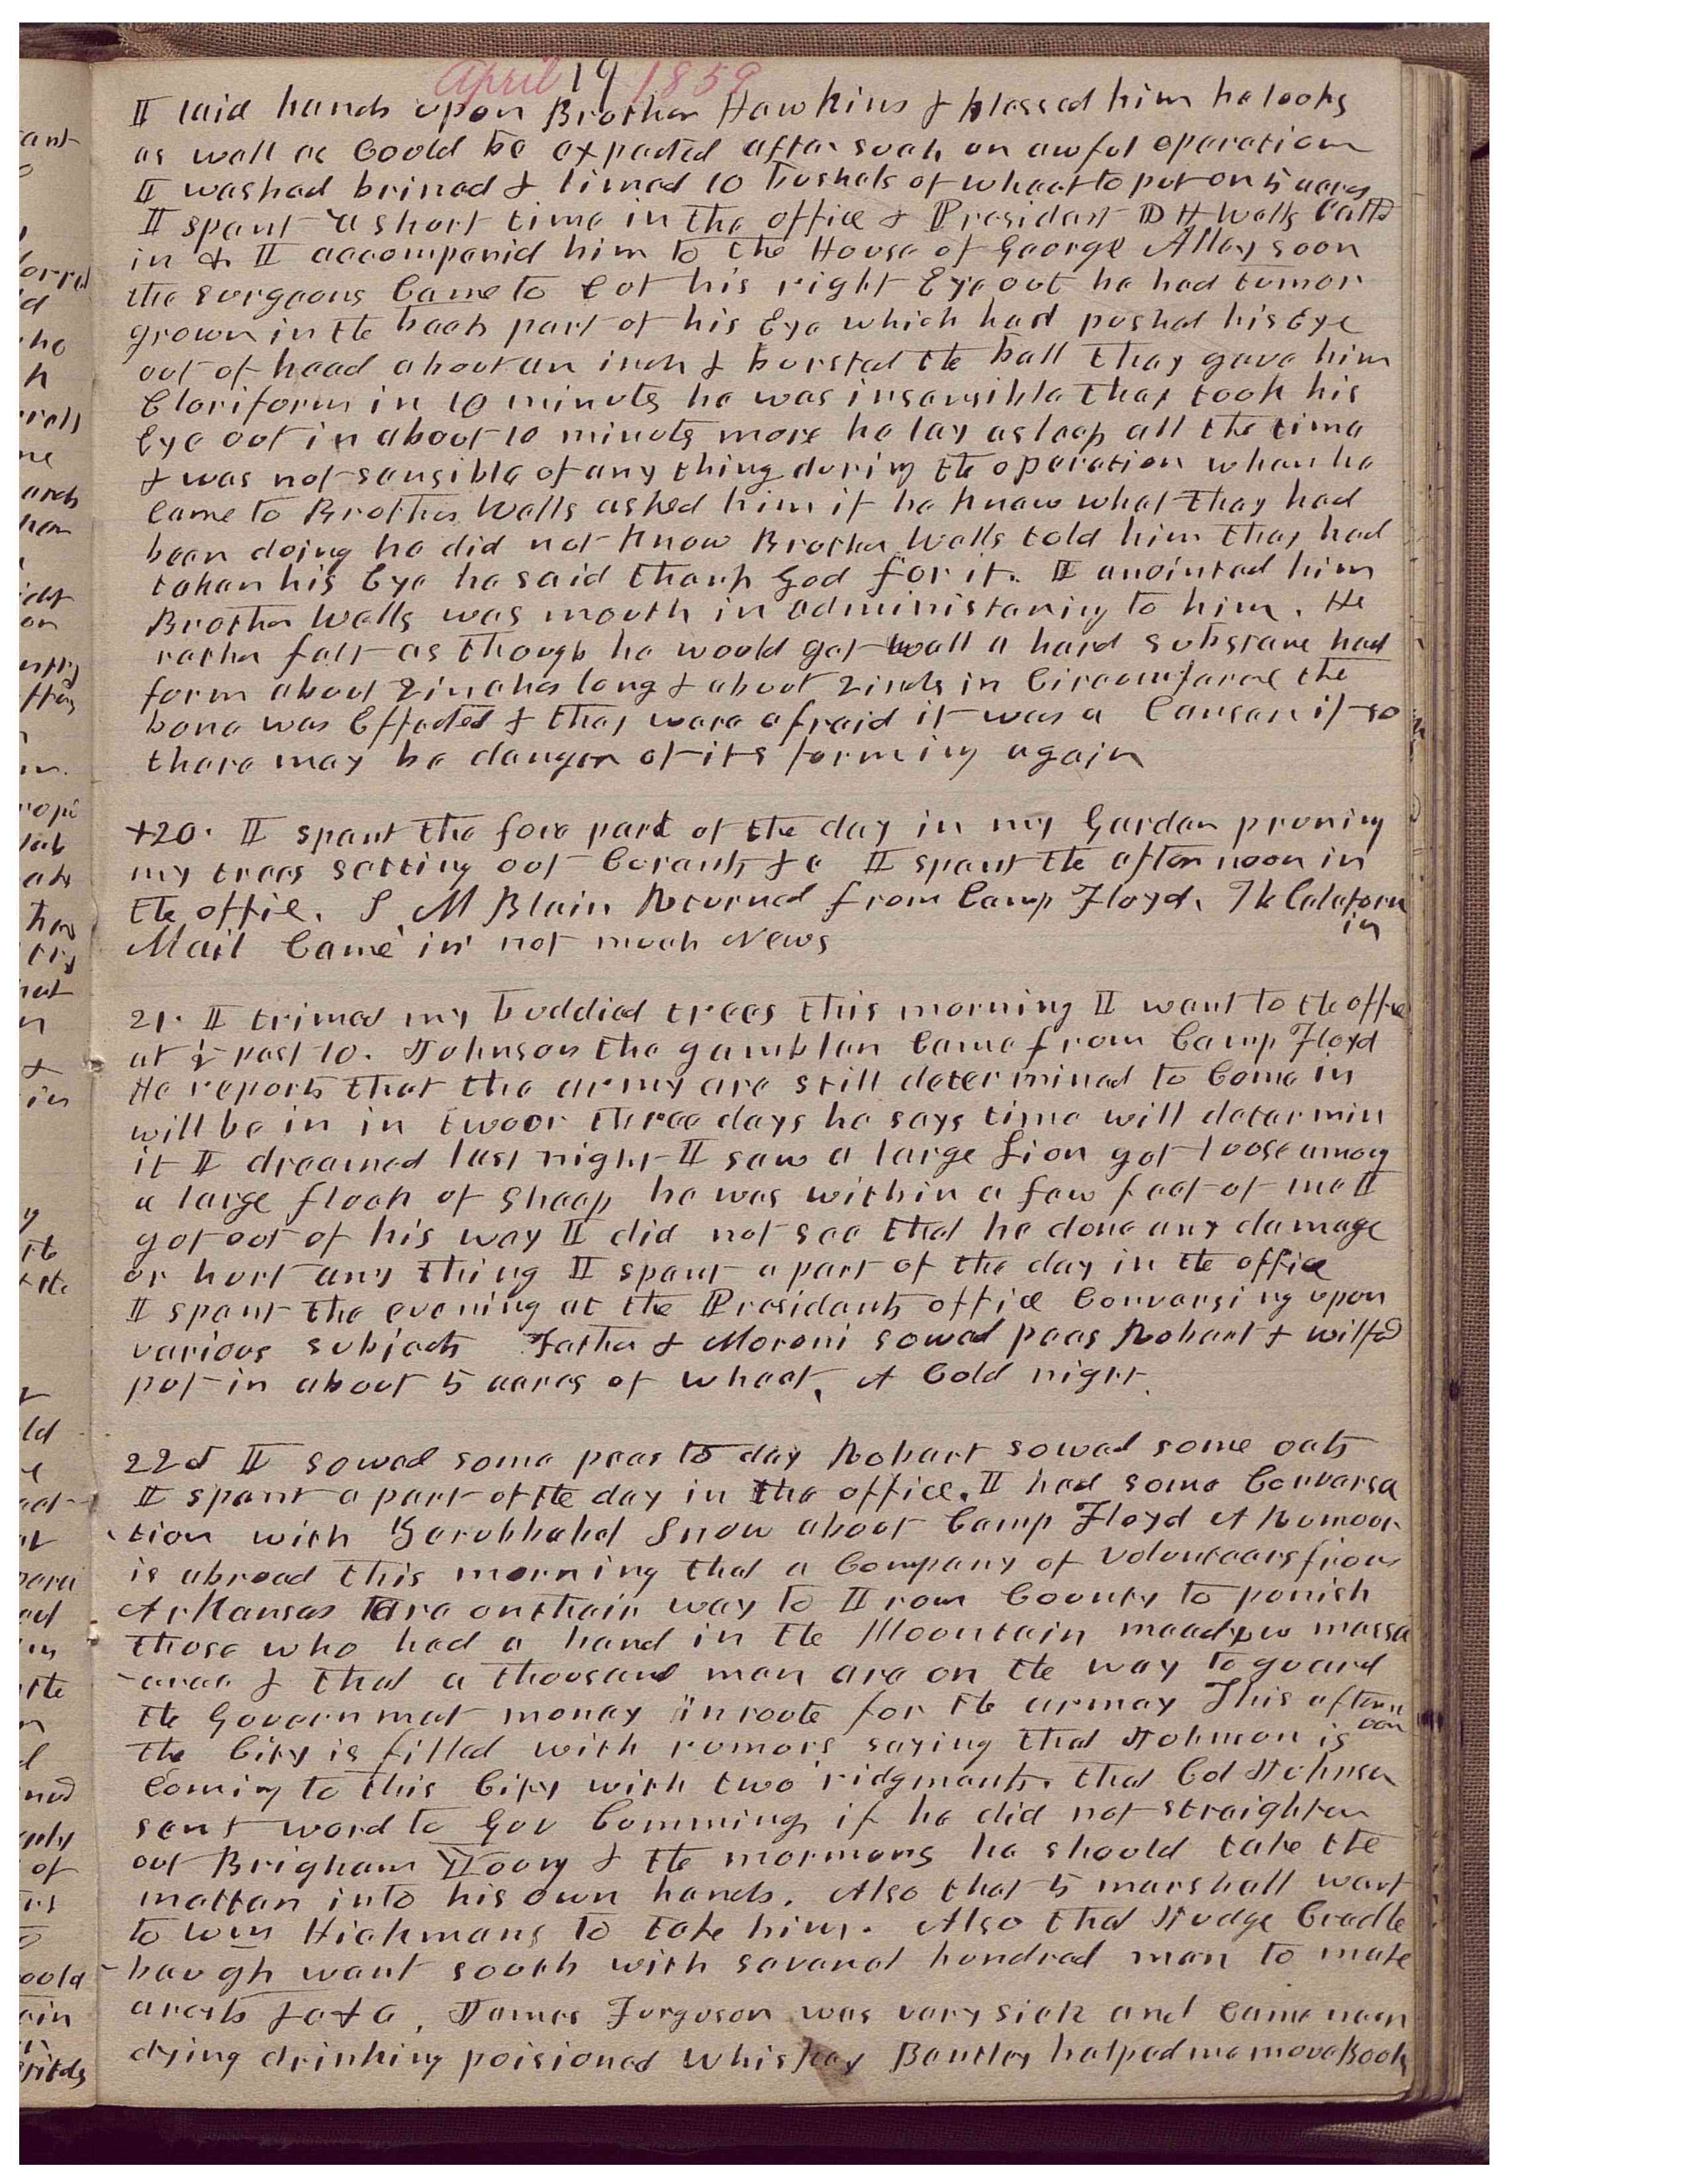 April 19 1859
I laid hands upon Brother Hawkins & blessed him he looks
as well as Could be expected after such an awful operation
I washed brined & limed 10 bushels of wheat to put on 5 acres
I spent a short time in the office & President D H Wells Calld
in & I accompanid him to the House of George Alley soon
the surgeons Came to Cut his right Eye out he had tumor
grown in the back part of his Eye which had pushed his Eye
out of head about an inch & bursted the ball they gave him
Cloriform in 10 minuts he was insensible they took his
Eye out in about 10 minuts more he lay asleep all the time
& was not sensible of any thing during the operation when he
Came to Brother Wells asked him if he knew what they had
been doing he did not know Brother Wells told him they had
taken his Eye he said thank God for it. I anointed him
Brother Wells was mouth in administering to him. He
rather felt as though he would get well a hard substane had
form about 2 inches long & about 2 inch in Circumfarne the
bone was Effected & they were afraid it was a Canser if so
there may be danger of its forming again
+20. I spent the fore part of the day in my Garden pruning
my trees setting out Curants &c I spent the afternoon in
the offie. S M Blain Returned from Camp Floyd. The Caleforn
in
Mail Came in not much News
21. I trimed my buddied trees this morning I went to the offie
at ½ past 10. Johnson the gambler Came from Camp Floyd
He reports that the army are still determined to Come in
will be in in two or three days he says time will determin
it I dreamed last night I saw a large Lion got loose among
a large flock of Sheep he was within a few feet of me I
got out of his way I did not see that he done any damage
or hurt any thing I spent a part of the day in the office
I spent the evening at the Presidents office Conversing upon
various subjects Father & Moroni sowed peas Robert & wilfd
put in about 5 acres of wheat. A Cold night.
22d I sowed some peas to day Robert sowed some oats
I spent a part of the day in the office. I had some Conversa
tion with Zerubbabel Snow about Camp Floyd A Rumoor
is abroad this morning that a Company of volunteers from
Arkansas are on their way to Iron County to punish
those who had a hand in the Mountain meadow massa
-cree & that a thousand men are on the way to guard
the Governmet money inroute for the armay This aftern
oon
the City is filled with rumors saying that Johnson is
Coming to this City with two ridgments. that Col Johnson
sent word to Gov Cumming if he did not straighten
out Brigham Young & the mormons he should take the
matter into his own hands. Also that 5 marshall went
to Wm Hickmans to take him. Also that Judge Cradle
-baugh went south with several hundred men to make
arests &c &c. James Furguson was very sick and Came near
dying drinking poisioned whiskey Bentley helped me move Book